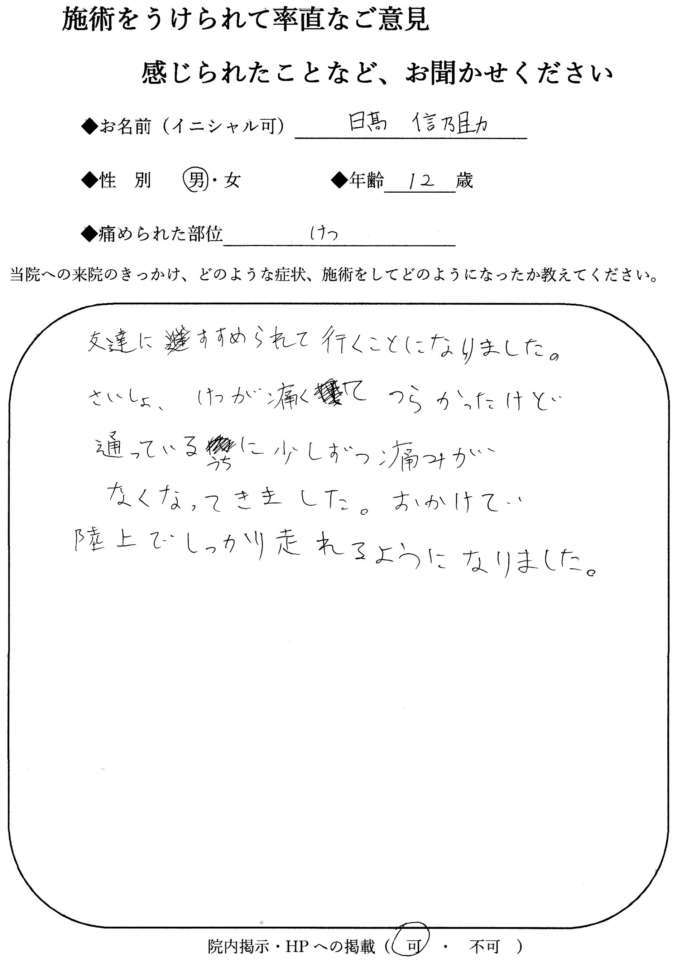 施術をうけられて率直なご意見
感じられたことなど、お聞かせください
◆お名前（イニシャル可） 日髙 信乃助
◆性 別 男・女 ◆年齢 12 歳
◆痛められた部位 けつ
当院への来院のきっかけ、どのような症状、施術をしてどのようになったか教えてください。
友達にすすめられて行くことになりました。
さいしょ、けつが痛くて つらかったけど
通っているうちに少しずつ痛みが
なくなってきました。おかけで
陸上でしっかり走れるようになりました。
院内掲示・HPへの掲載（ 可 ・ 不可 ）